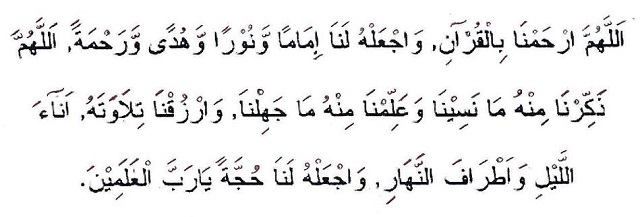 اَللّٰهُمَّ ارْحَمْنَا بِالْقُرْآنِ, وَاجْعَلْهُ لَنَا اِمَامًا وَّنُوْرًا وَّهُدًى وَّرَحْمَةً, اَللّٰهُمَّ
ذَكِّرْنَا مِنْهُ مَا نَسِيْنَا وَعَلِّمْنَا مِنْهُ مَا جَهِلْنَا, وَارْزُقْنَا تِلَاوَتَهُ, اٰنَآءَ
اللَّيْلِ وَاَطْرَافَ النَّهَارِ, وَاجْعَلْهُ لَنَا حُجَّةً يَارَبَّ الْعٰلَمِيْنَ.